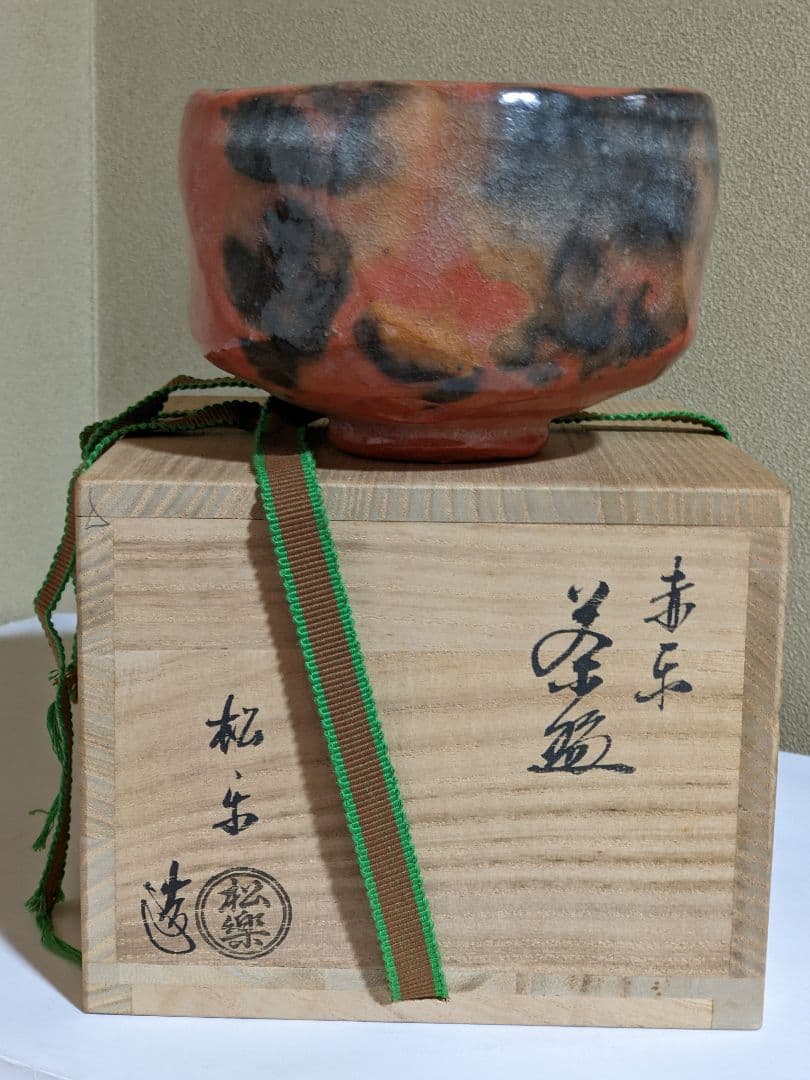 赤楽
茶碗
松楽
造
松樂